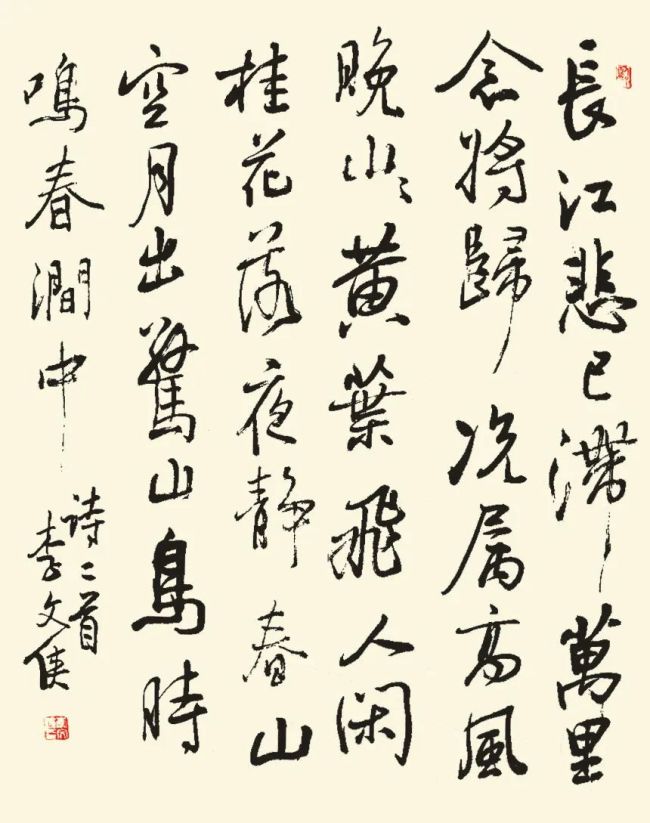 長江悲已滯萬里
念將歸况属高風
晚山〻黄葉飛人闲
桂花落夜静春山
空月出驚山鳥時
鳴春澗中
诗二首
李文侠